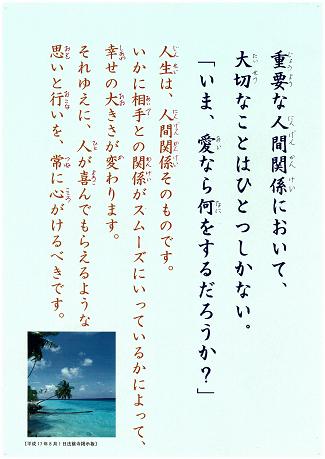 重要な人間関係において、
大切なことはひとつしかない。
「いま、愛なら何をするだろうか？」
人生は、人間関係そのものです。
いかに相手との関係がスムーズにいっているかによって、
幸せの大きさが変わります。
それゆえに、人が喜んでもらえるような
思いと行いを、常に心がけるべきです。
【平成17年8月1日法観寺掲示板】